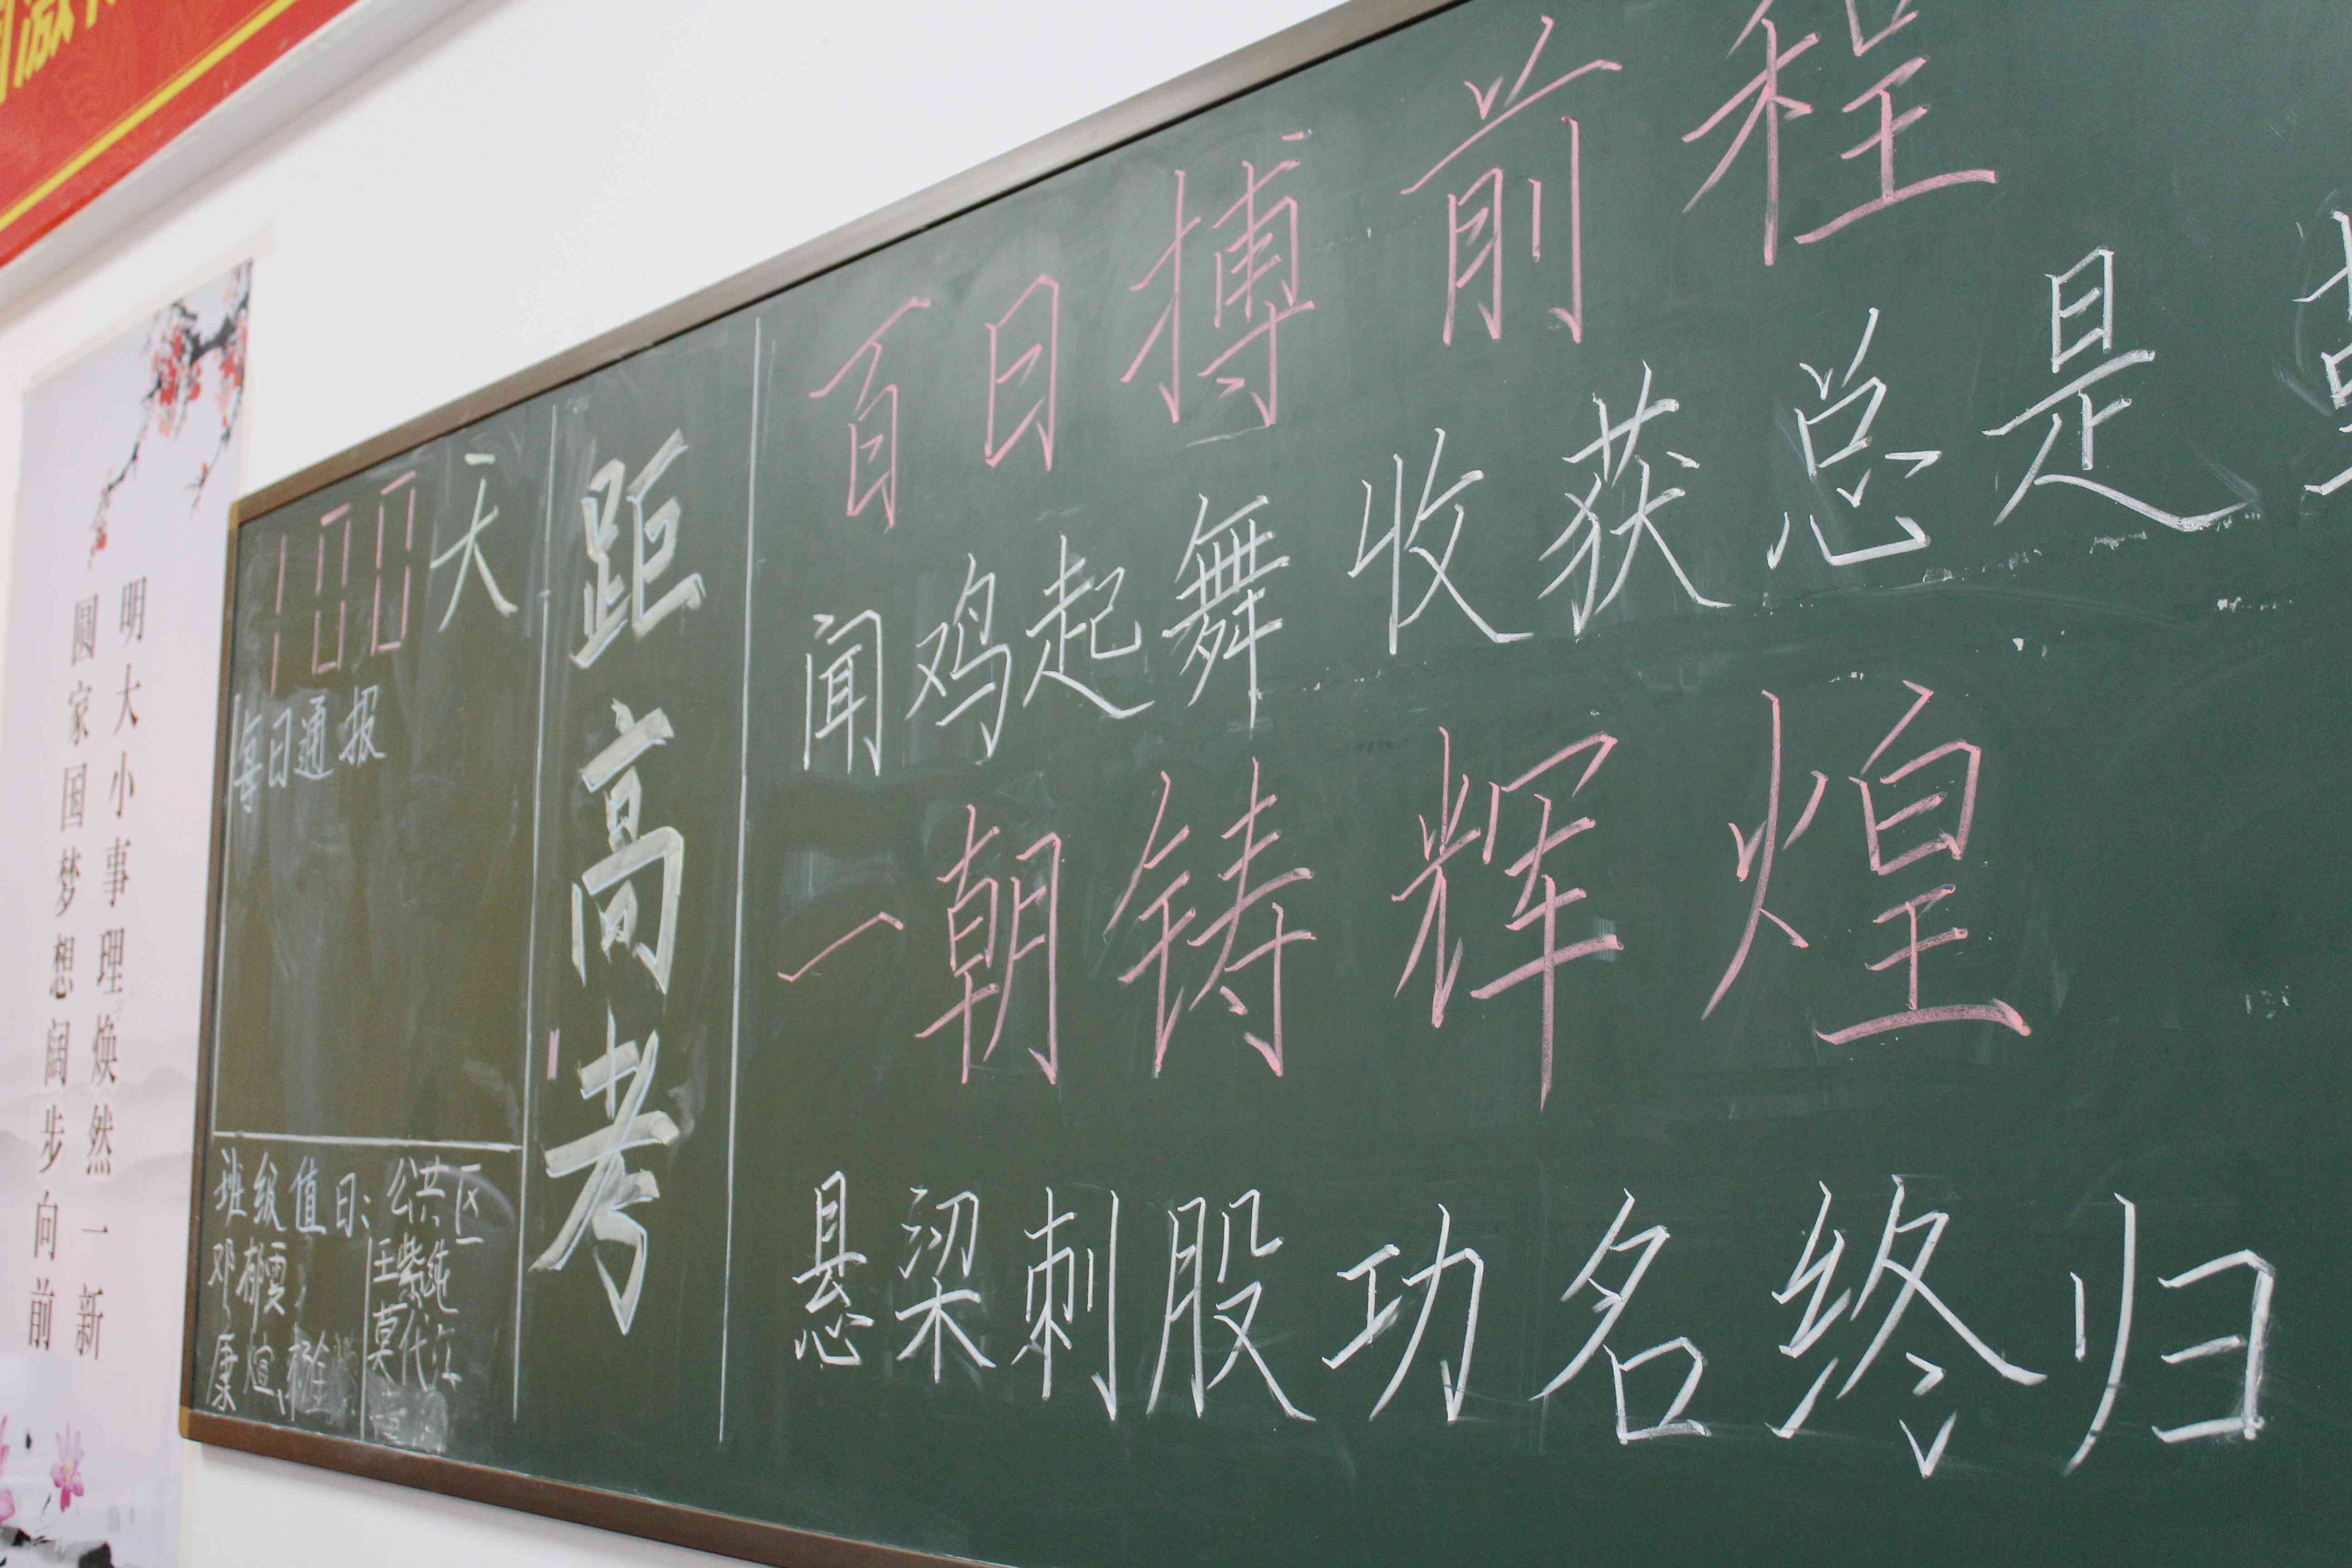 明大小事理焕然一新
圆家国梦想阔步向前
100天
每日通报
距高考
百日搏前程
闻鸡起舞 收获总是
一朝铸辉煌
悬梁刺股 功名终归
班级值日：
邓郁雯
康煊
公共区
王紫纯
莫代江